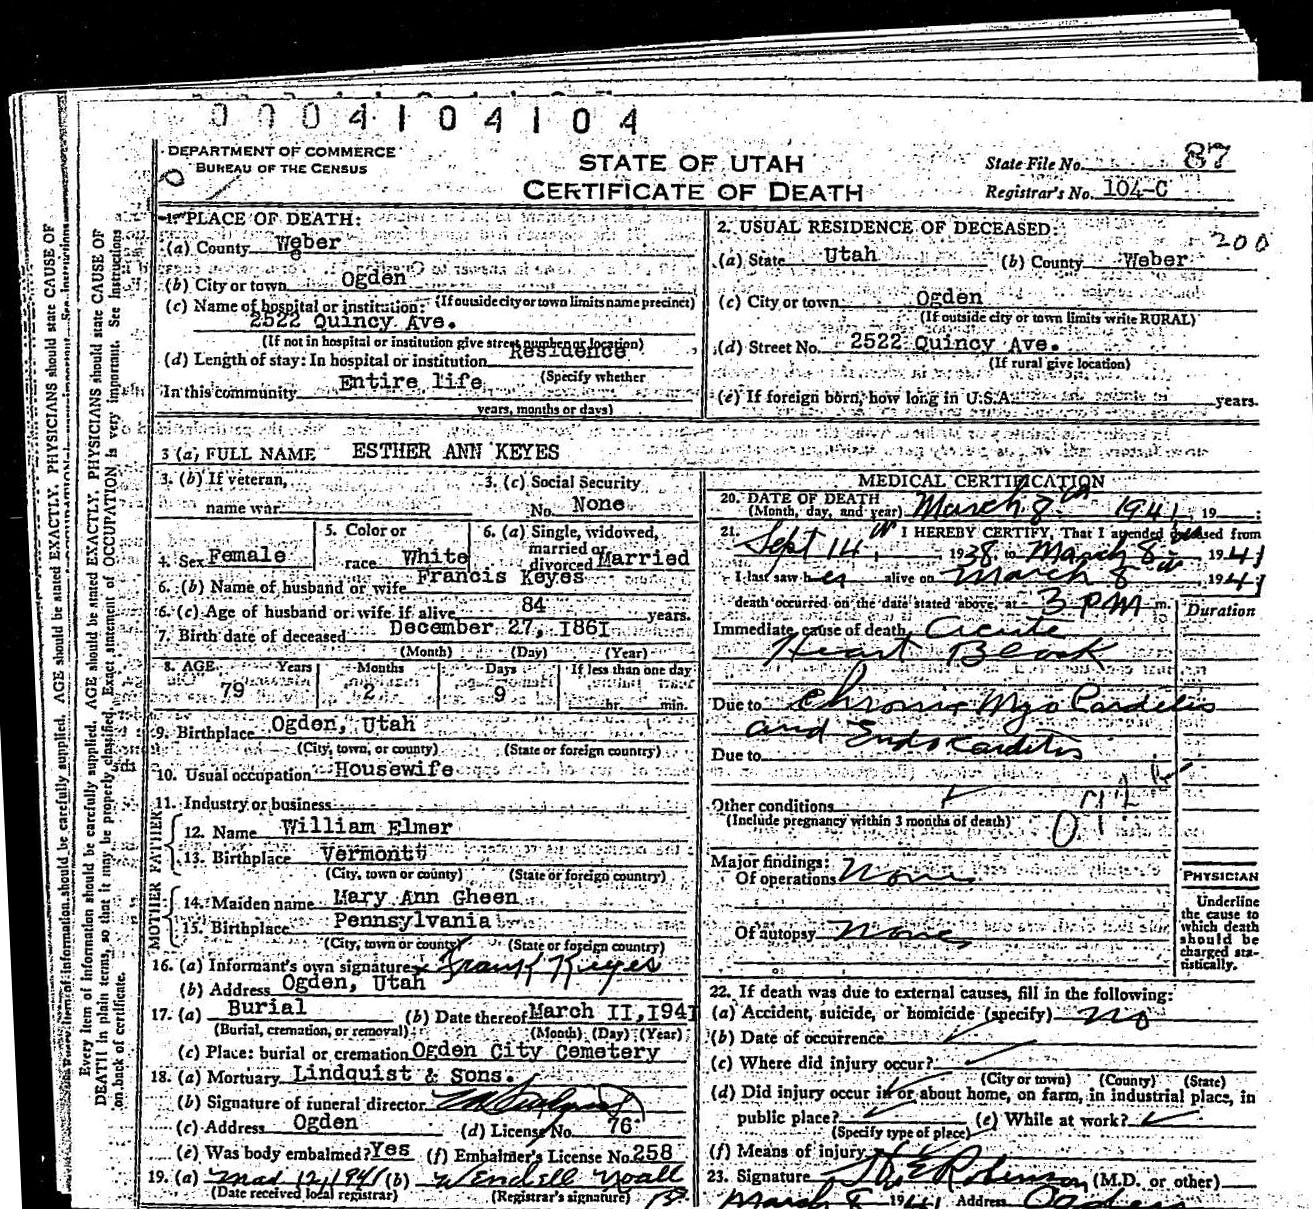 0004104104
DEPARTMENT OF COMMERCE
BUREAU OF THE CENSUS
STATE OF UTAH
CERTIFICATE OF DEATH
State File No. 87
Registrar's No. 104-C
1. PLACE OF DEATH:
(a) County Weber
(b) City or town Ogden
(If outside city or town limits name precinct)
(c) Name of hospital or institution:
2522 Quincy Ave.
(If not in hospital or institution give street number or location)
(d) Length of stay: In hospital or institution Residence
(Specify whether
In this community Entire life
years, months or days)
2. USUAL RESIDENCE OF DECEASED:
200
(a) State Utah (b) County Weber
(c) City or town Ogden
(If outside city or town limits write RURAL)
(d) Street No. 2522 Quincy Ave.
(If rural give location)
(e) If foreign born, how long in U.S.A. years.
3 (a) FULL NAME ESTHER ANN KEYES
3. (b) If veteran, name war
3. (c) Social Security No. None
4. Sex Female
5. Color or race White
6. (a) Single, widowed, married or divorced Married
6. (b) Name of husband or wife Francis Keyes
6. (c) Age of husband or wife if alive 84 years.
7. Birth date of deceased December 27, I86I
(Month) (Day) (Year)
8. AGE Years Months Days If less than one day
79 2 9 hr. min.
9. Birthplace Ogden, Utah
(City, town, or county) (State or foreign country)
10. Usual occupation Housewife
11. Industry or business
FATHER
12. Name William Elmer
13. Birthplace Vermontt
(City, town or county) (State or foreign country)
MOTHER
14. Maiden name Mary Ann Gheen
15. Birthplace Pennsylvania
(City, town or county) (State or foreign country)
16. (a) Informant's own signature x Frank Keyes
(b) Address Ogden, Utah
17. (a) Burial (b) Date thereof March II, I941
(Burial, cremation, or removal) (Month) (Day) (Year)
(c) Place: burial or cremation Ogden City Cemetery
18. (a) Mortuary Lindquist & Sons.
(b) Signature of funeral director
(c) Address Ogden (d) License No. 76
(e) Was body embalmed? Yes (f) Embalmer's License No. 258
19. (a) Mar 12, 1941 (b) Wendell Noall
(Date received local registrar) (Registrar's signature)
MEDICAL CERTIFICATION
20. DATE OF DEATH
(Month, day, and year) March 8th 1941, 19
21. I HEREBY CERTIFY, That I attended deceased from
Sept 14th, 1938 to March 8th 1941
I last saw her alive on March 8 1941
death occurred on the date stated above, at 3 PM m.
Duration
Immediate cause of death Acute
Heart Block
Due to Chronic Myo Carditis
and Endocarditis
Due to
Other conditions
(Include pregnancy within 3 months of death)
Major findings:
Of operations None
Of autopsy None
PHYSICIAN
Underline
the cause to
which death
should be
charged sta-
tistically.
22. If death was due to external causes, fill in the following:
(a) Accident, suicide, or homicide (specify) no
(b) Date of occurrence
(c) Where did injury occur?
(City or town) (County) (State)
(d) Did injury occur in or about home, on farm, in industrial place, in
public place? (e) While at work?
(Specify type of place)
(f) Means of injury
23. Signature (M.D. or other)
March 8 1941 Address Ogden
Every item of information should be carefully supplied. AGE should be stated EXACTLY. PHYSICIANS should state CAUSE OF
DEATH in plain terms, so that it may be properly classified. Exact statement of OCCUPATION is very important. See Instructions
on back of certificate.